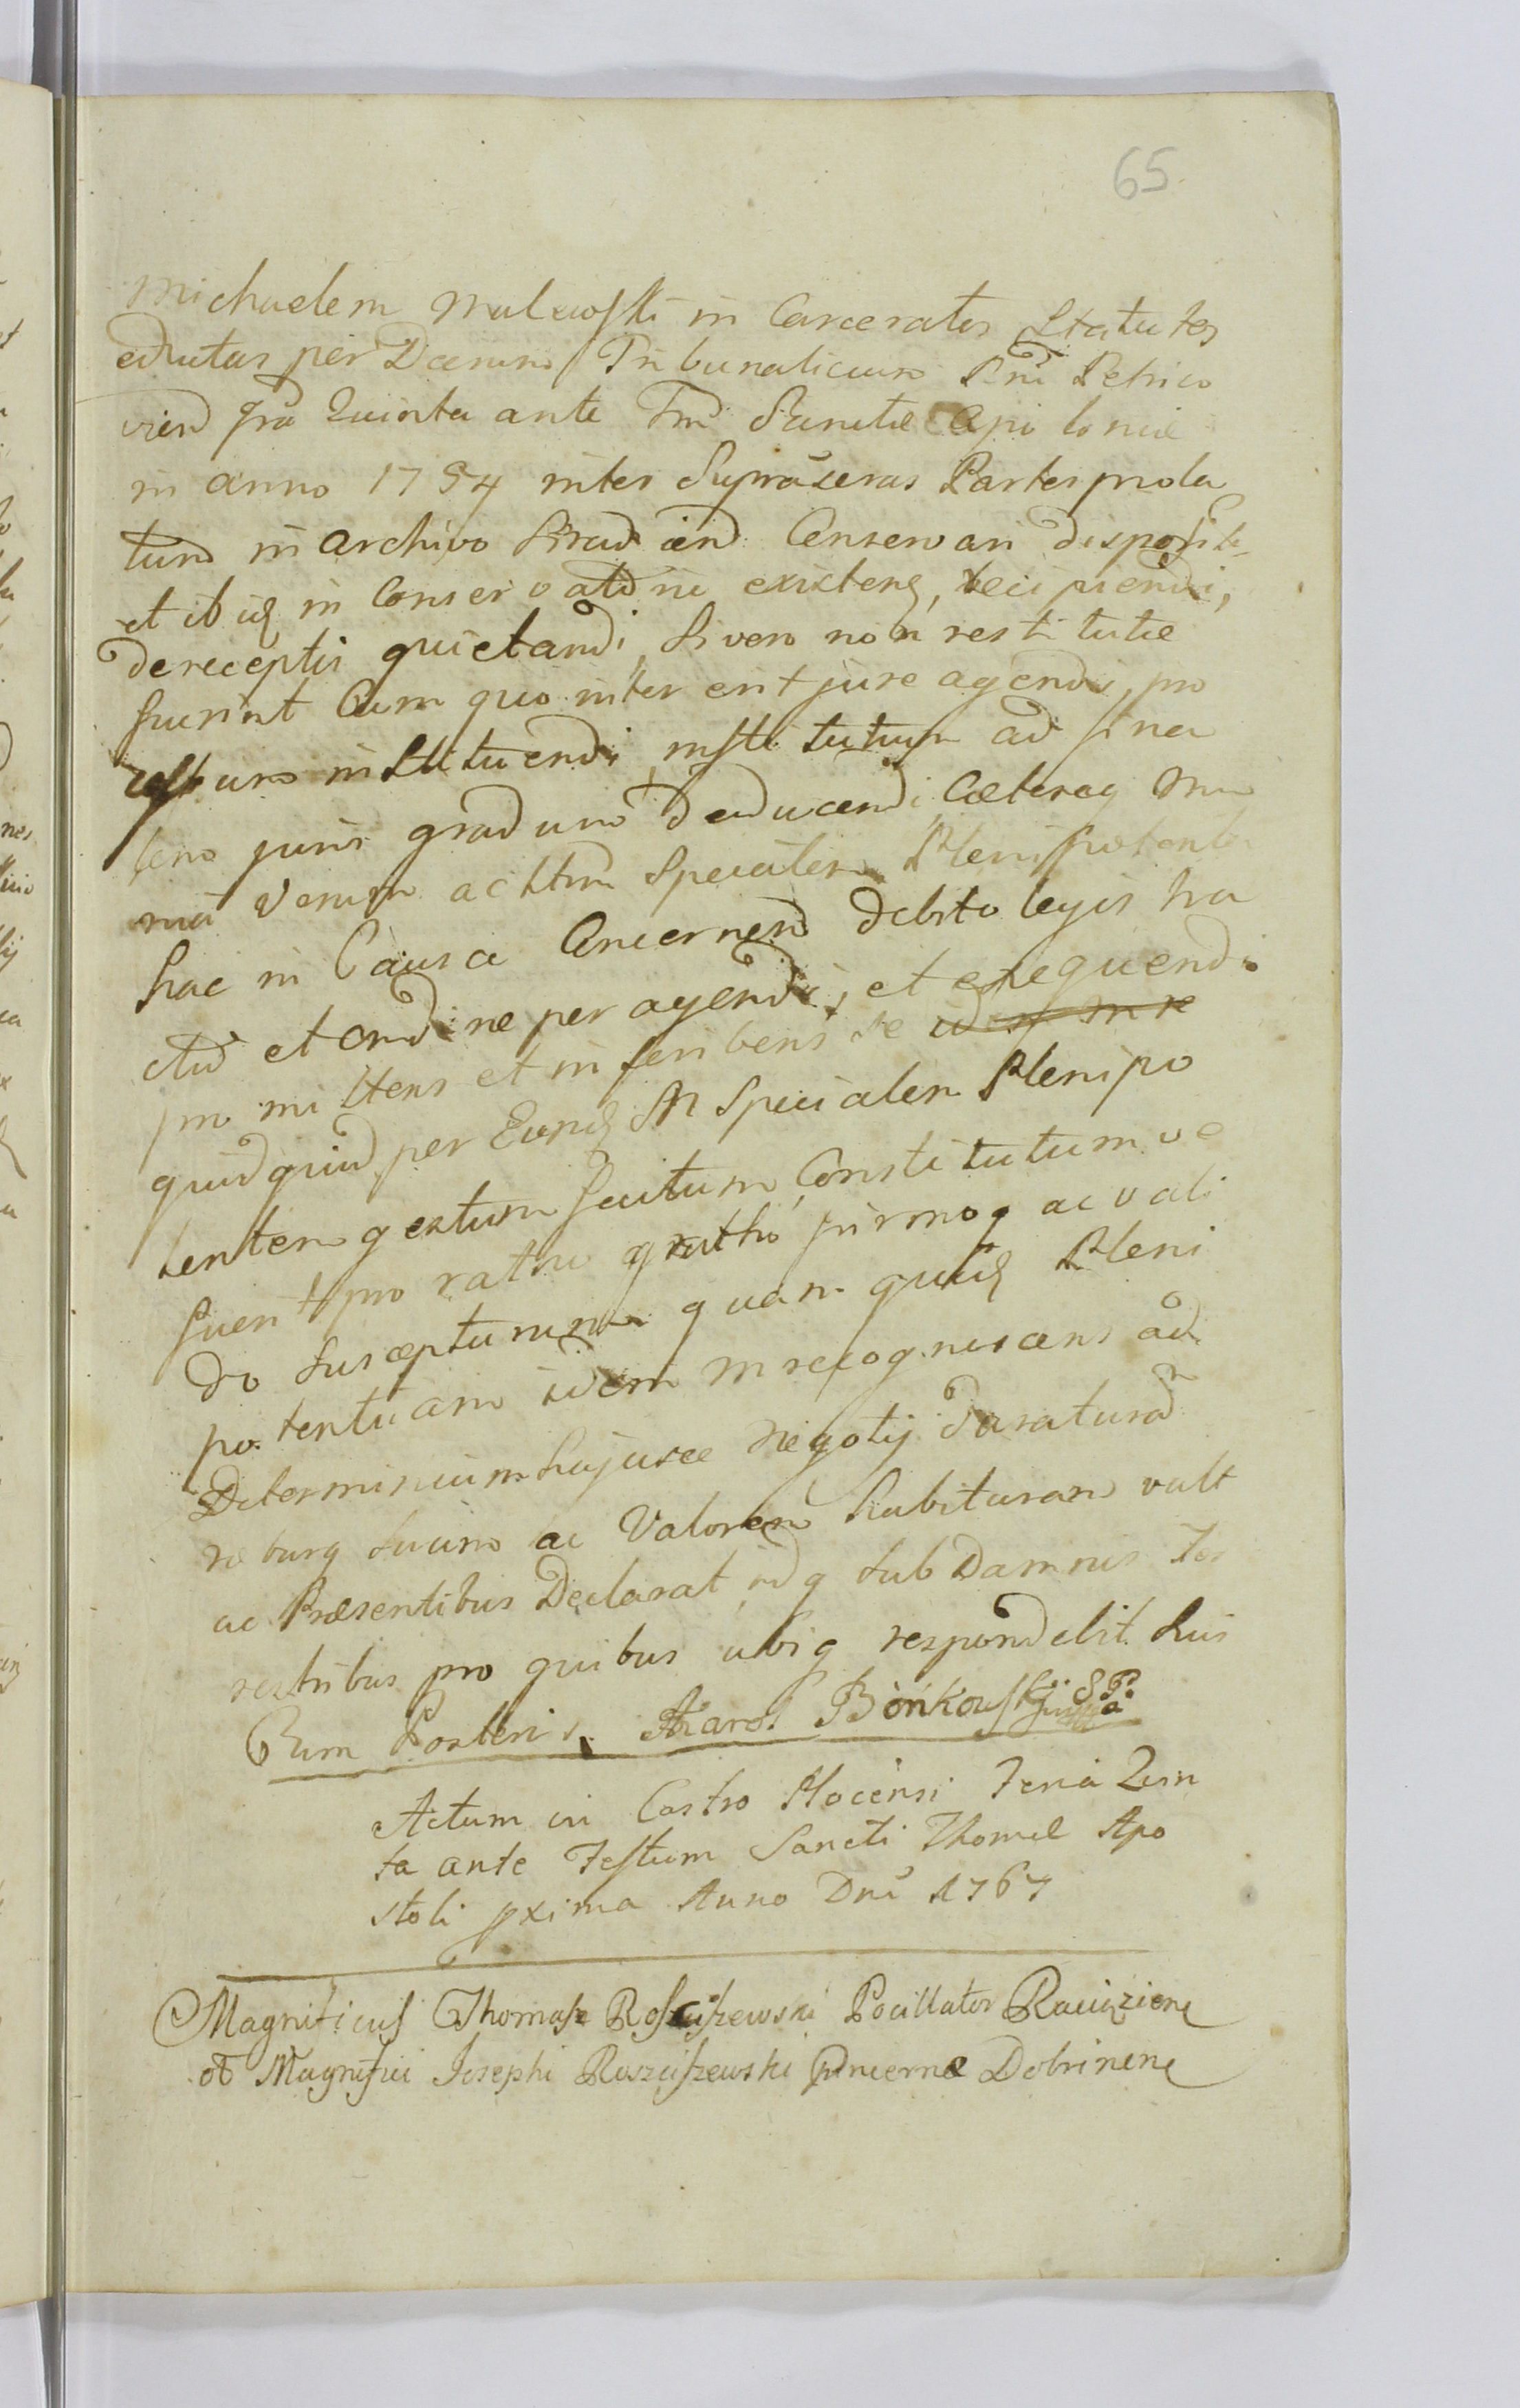 65.
Michaelem Malewski in Carceratos Statutos
eductas per Decrum Tribunalicium Rni Petrico
vien fra Quinta ante Fm Sanctæ Apo loniæ
in anno 1754 inter Supraseras Partes prola
tum in Archivo Sirad ien Conservari disposit
et ibiq in Conservatone existens, recipiendi,
de receptis quietandi, Si vero non restitutæ
fuerint Cum quo inter erit jure agendi, pro
cessum instituendi institutum ad fina
lem juris gradum deducendi, Cæteraq mu
nia Verum ac lttm Specialem Plenipotentem
hac in Causa Concernen debito legis tra
ctu et ordine per agendi, et exequendi
pro mittens et inscribens se
quidquid per Eunq M Specialem Plenipo
tentem gestum factum Constitutum ve
fuerit pro ratho gratho firmoq ac vali
do Suscepturum quam quid Pleni
potentiam idem M recognoscens ad
Determinium hujusce Negotij Duraturam
roburq Suum ac Valorem habituram vult
ac Præsentibus Declarat idq Sub Damnis Ter
restribus pro quibus ubiq respondebit Suis
Cum Posteris Karol Bońkowski SP
Actum in Castro Plocensi Feria Quin
ta ante Festum Sancti Thomæ Apo
stoli pxima Anno Dni 1767
Magnificus Thomas Rosciszewski Pocillator Raciązienę
ob Magnifici Josephi Rosciszewski Pincernæ Dobrinenę